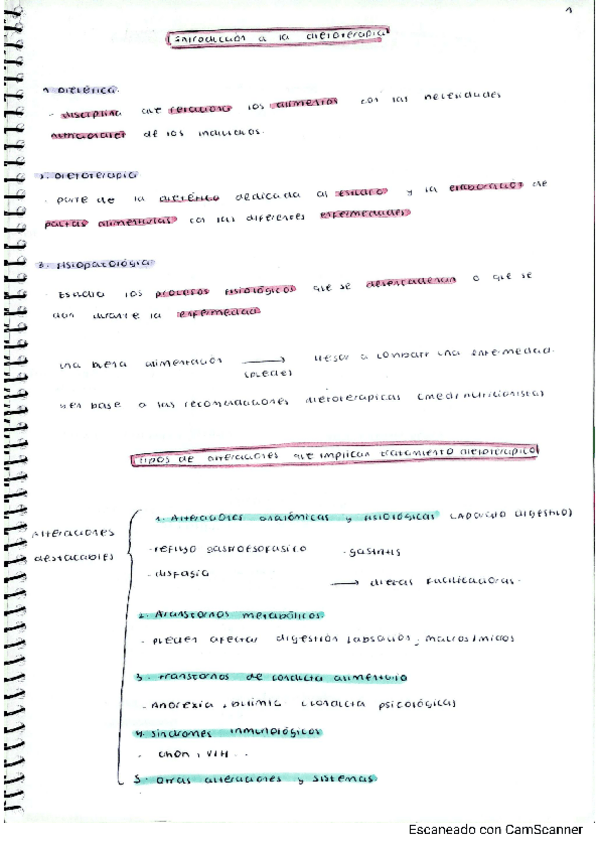 1
Introducción a la dietoterapia
1. Dietética.
- disciplina que relaciona los alimentos con las necesidades
nutricionales de los individuos.
2. Dietoterapia
- parte de la dietética dedicada al estudio y la elaboración de
pautas alimentarias con las diferentes enfermedades
3. Fisiopatología
Estudia los procesos fisiológicos que se desencadenan o que se
dan durante la enfermedad
una buena alimentación → llegar a combatir una enfermedad.
(puede)
en base a las recomendaciones dietoterapicas (medr nutricionista)
Tipos de alteraciones que implican tratamiento dietoterapico
Alteraciones
destacables
1. Alteraciones anatómicas y fisiológicas (Aparato digestivo)
- reflujo gastroesofasico - gastritis
- disfagia
→ dietas facilitadoras.
2. Transtornos metabólicos.
- pueden afectar digestion, absorción, macros/micros
3. Transtornos de conducta alimentaria
- Anorexia, bulimia (conducta psicológica)
4. Sindromes inmunológicos
- VIH..
5. Otras alteraciones y sistemas
Escaneado con CamScanner